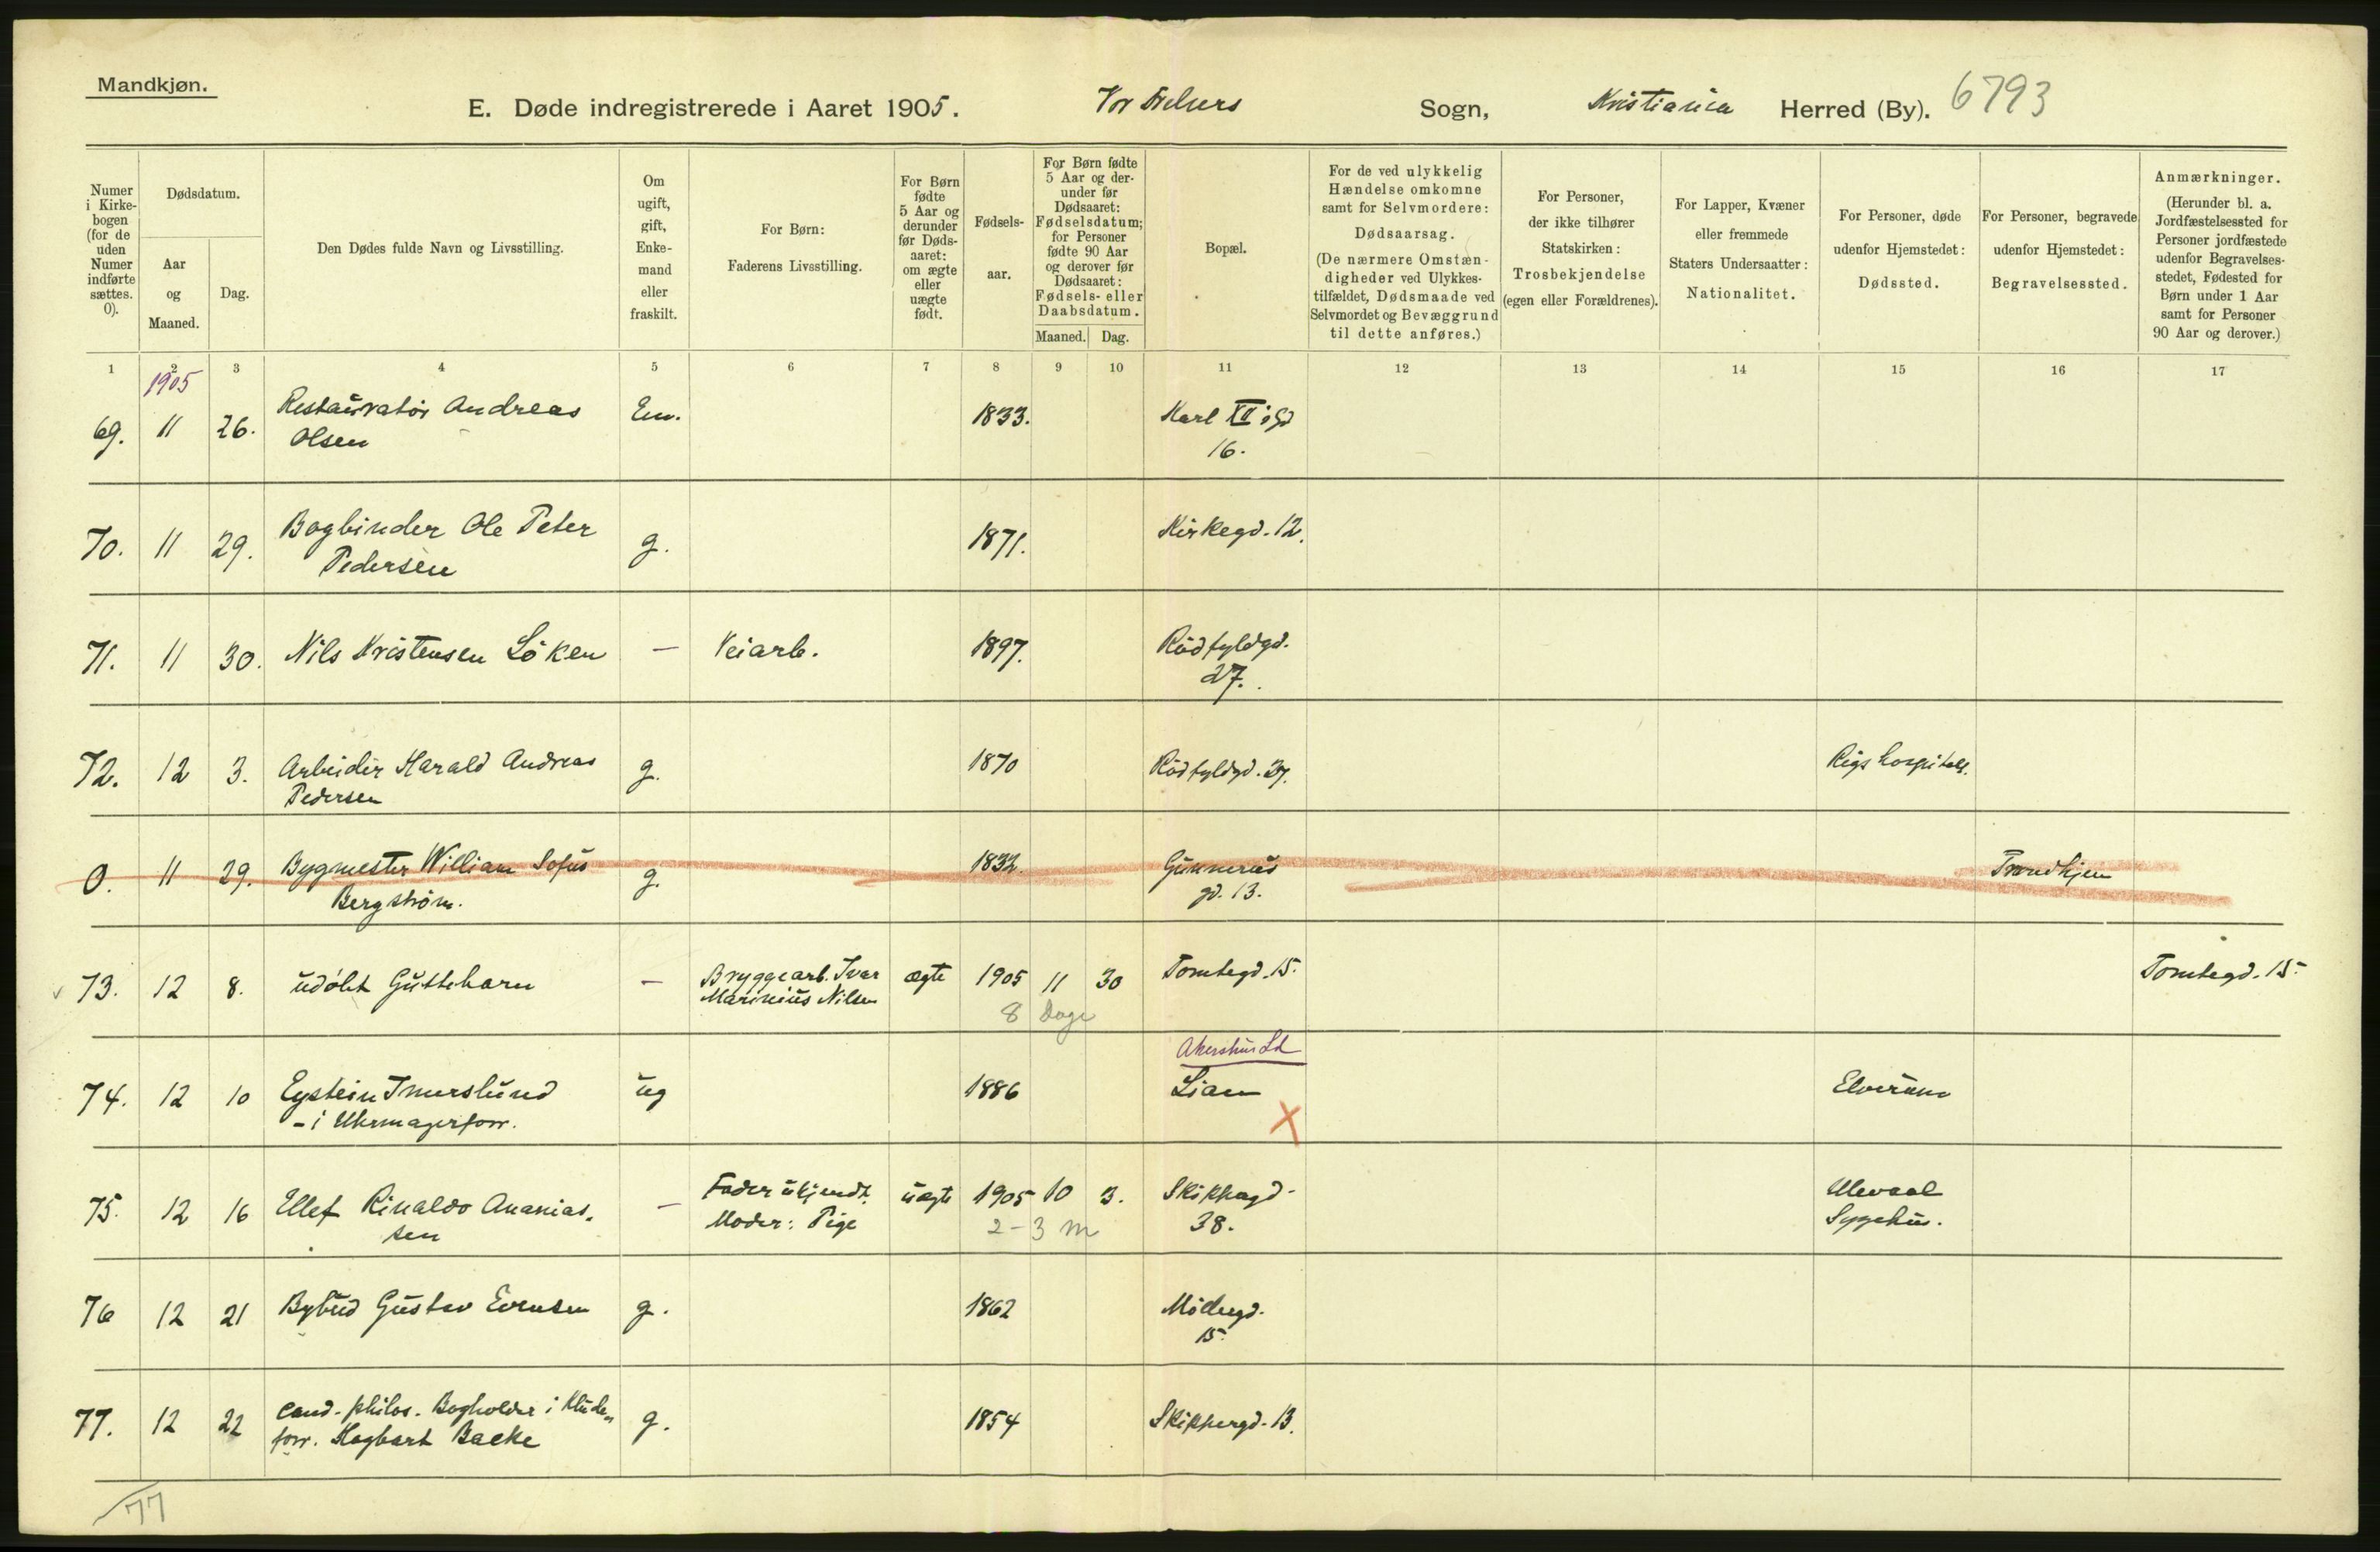 Mandkjøn.
E. Døde indregistrerede i Aaret 1905. Vor Frelsers Sogn, Kristiania Herred (By). 6793
Numer i Kirkebogen (for de uden Numer indførte sættes. 0).
Dødsdatum.
Aar og Maaned.
Dag.
Den Dødes fulde Navn og Livsstilling.
Om ugift, gift, Enkemand eller fraskilt.
For Børn: Faderens Livsstilling.
For Børn fødte 5 Aar og derunder før Dødsaaret: om ægte eller uægte født.
Fødselsaar.
For Børn fødte 5 Aar og derunder før Dødsaaret: Fødselsdatum; for Personer fødte 90 Aar og derover før Dødsaaret: Fødsels- eller Daabsdatum.
Maaned. Dag.
Bopæl.
For de ved ulykkelig Hændelse omkomne samt for Selvmordere: Dødsaarsag. (De nærmere Omstændigheder ved Ulykkestilfældet, Dødsmaade ved Selvmordet og Bevæggrund til dette anføres.)
For Personer, der ikke tilhører Statskirken: Trosbekjendelse (egen eller Forældrenes).
For Lapper, Kvæner eller fremmede Staters Undersaatter: Nationalitet.
For Personer, døde udenfor Hjemstedet: Dødssted.
For Personer, begravede udenfor Hjemstedet: Begravelsessted.
Anmærkninger. (Herunder bl. a. Jordfæstelsessted for Personer jordfæstede udenfor Begravelsesstedet, Fødested for Børn under 1 Aar samt for Personer 90 Aar og derover.)
1 2 3 4 5 6 7 8 9 10 11 12 13 14 15 16 17
1905
69. 11 26. Restauratør Andreas Em. 1833. Karl XII's Gd
Olsen 16.
70. 11 29. Bogbinder Ole Peter g. 1871. Kirkegd. 12.
Pedersen
71. 11 30. Nils Kristensen Löken — Veiarb. 1897. Rödfyldgd.
27.
72. 12 3. Arbeider Harald Andreas g. 1870 Rödfyldgd. 27. Rigshospitalet.
Pedersen
0. 11 29. Bygmester William Sofus g. 1832. Gunnerus Trondhjem
Bergström. gd. 13.
73. 12 8. udøbt Guttebarn — Bryggearb. Ivar ægte 1905 11 30 Tomtegd. 15. Tomtegd. 15.
Marinius Nilsen
8 Dage
Akershus Ld
74. 12 10 Eystein Imerslund ug 1886 Lian X Elverum
- i Uhrmagerforr.
75. 12 16 Ellef Rinaldo Ananias- — Fader ukjendt. uægte 1905 10 3. Skippagd. Ulevaal
sen Moder: Pige 2-3 m 38. Sygehus.
76 12 21 Bybud Gustav Evensen g. 1862 Möllergd.
15.
77. 12 22 cand. philos. Bogholder i Klæde- g. 1854 Skippergd. 13.
forr. Hagbart Backe
77